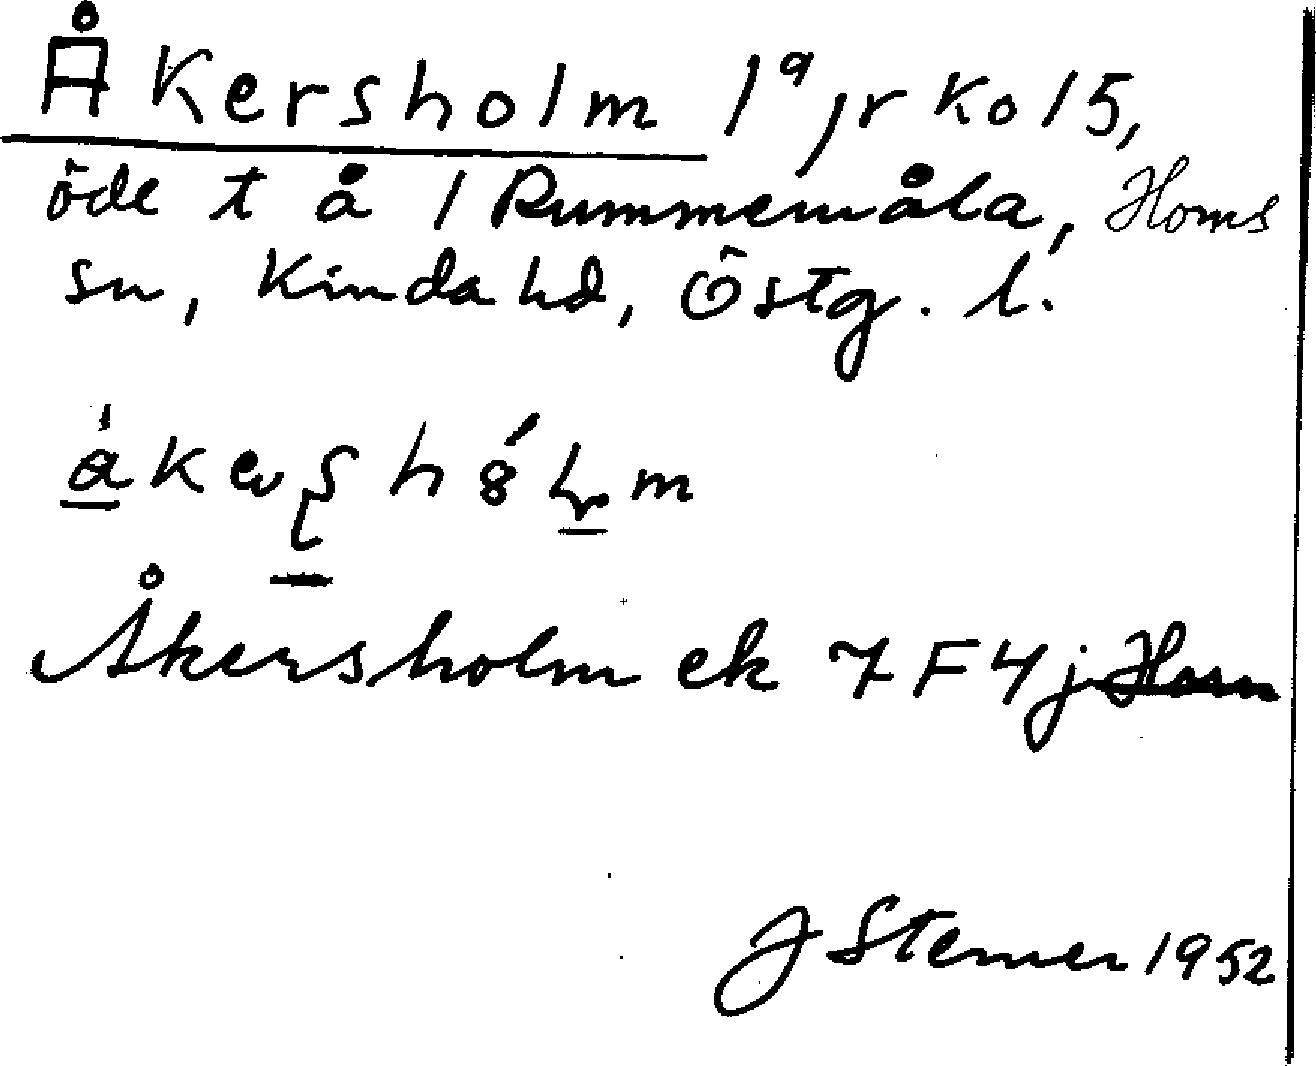 Åkersholm 1a, jr Ko 15,
öde t å 1 Rummemåla, Horns
sn, Kinda hd, Östg. l.
Åkersholm ek 7F4j Horn
J Sterner 1952